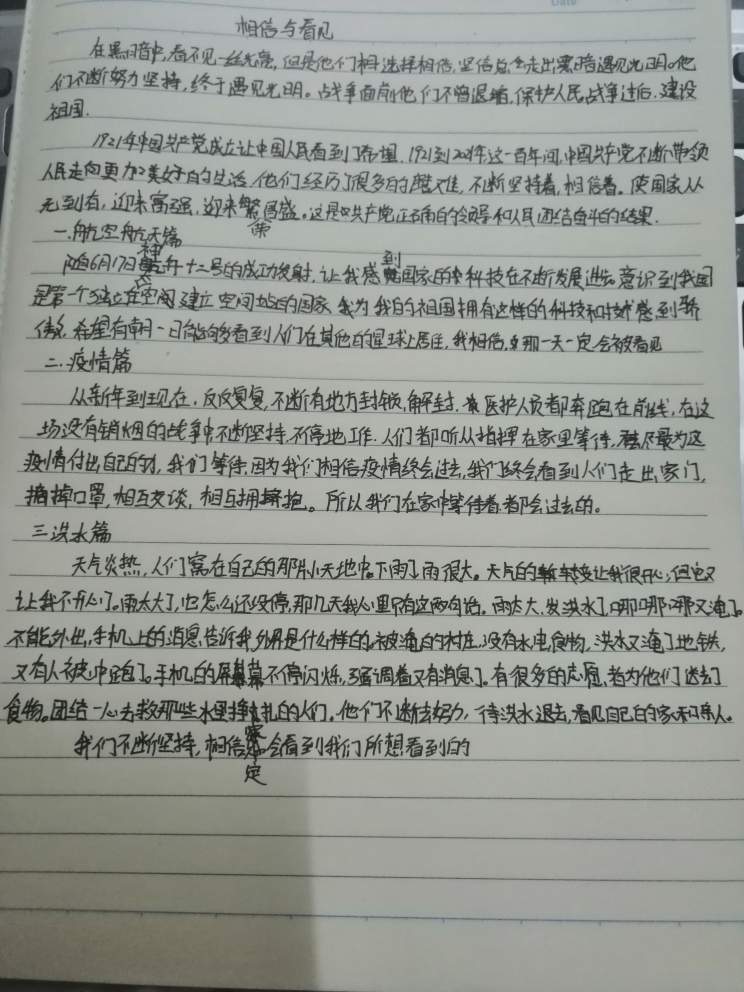 Date
相信与看见
在黑暗中,看不见一丝光亮,但是他们选择相信,坚信总会走出黑暗遇见光明。他
们不断努力坚持,终于遇见光明。战争面前他们不曾退缩,保护人民,战争过后,建设
祖国.
1921年中国共产党成立让中国人民看到了希望.1921到2021年这一百年间,中国共产党不断带领
人民走向更加美好的生活,他们经历了很多的磨难,不断坚持着,相信着。使国家从
无到有,迎来富强,迎来繁荣昌盛。这是共产党正确的领导和人民团结奋斗的结果.
一.航空航天篇
随6月17日神舟十二号的成功发射,让我感到国家的科技在不断发展进步意识到我国
是第一个独立在空间建立空间站的国家,我为我的祖国拥有这样的科技和技术感到骄
傲,希望有朝一日能够看到人们在其他的星球上居住,我相信,那一天一定会被看见
二.疫情篇
从新年到现在,反反复复,不断有地方封锁,解封,医护人员都奔跑在前线,在这
场没有销烟的战争中不断坚持,不停地工作.人们都听从指挥在家里等待,为这
疫情付出自己的力,我们等待,因为我们相信疫情终会过去,我们终会看到人们走出家门,
摘掉口罩,相互交谈,相互拥抱。所以我们在家中等待着,都会过去的。
三.洪水篇
天气炎热,人们窝在自己的那片小天地中。下雨了雨很大。天气的转变让我很开心,但它又
让我不开心了。雨太大了,它怎么还没停,那几天我心里只有这两句话。雨太大,发洪水了,哪哪哪又淹了。
不能外出,手机上的消息告诉我外界是什么样的。被淹的村庄,没有水电食物,洪水又淹了地铁,
又有人被冲跑了。手机的屏幕不停闪烁,强调着又有消息了。有很多的志愿者为他们送去了
食物。团结一心去救那些水里挣扎的人们。他们不断去努力,待洪水退去,看见自己的家和亲人。
我们不断坚持,相信定会看到我们所想看到的